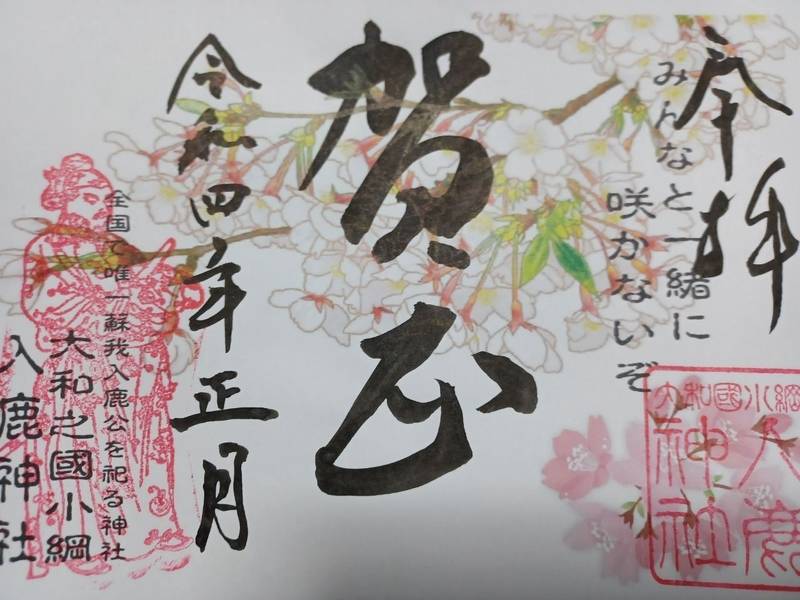 奉拝
みんなと一緒に
咲かないぞ
大和國小綱
入鹿
神社
賀正
令和四年正月
全国で唯一蘇我入鹿公を祀る神社
大和之國小綱
入鹿神社